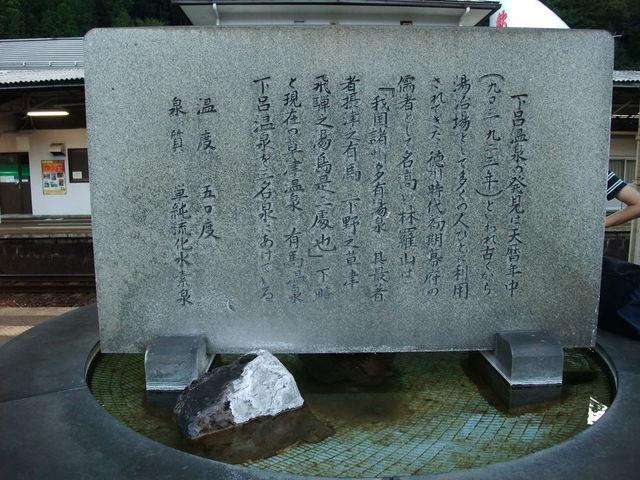 下呂温泉の発見は天暦年中
といわれ古くから
湯治場として多くの人びとに利用
されてきた 徳川時代初期
儒者として名高い林羅山は
「我国諸州多有湯泉 其最著
者摂津之有馬 下野之草津
飛騨之湯島是三處也」下略
と現在の草津温泉 有馬温泉
下呂温泉を三名泉にあげている
温度 五〇度
泉質 単純流化水素泉